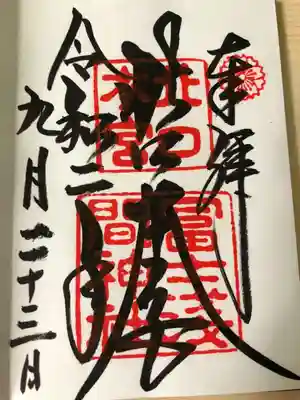 奉拝
東口本宮
冨士浅
間神社
令和二年
九月二十三日